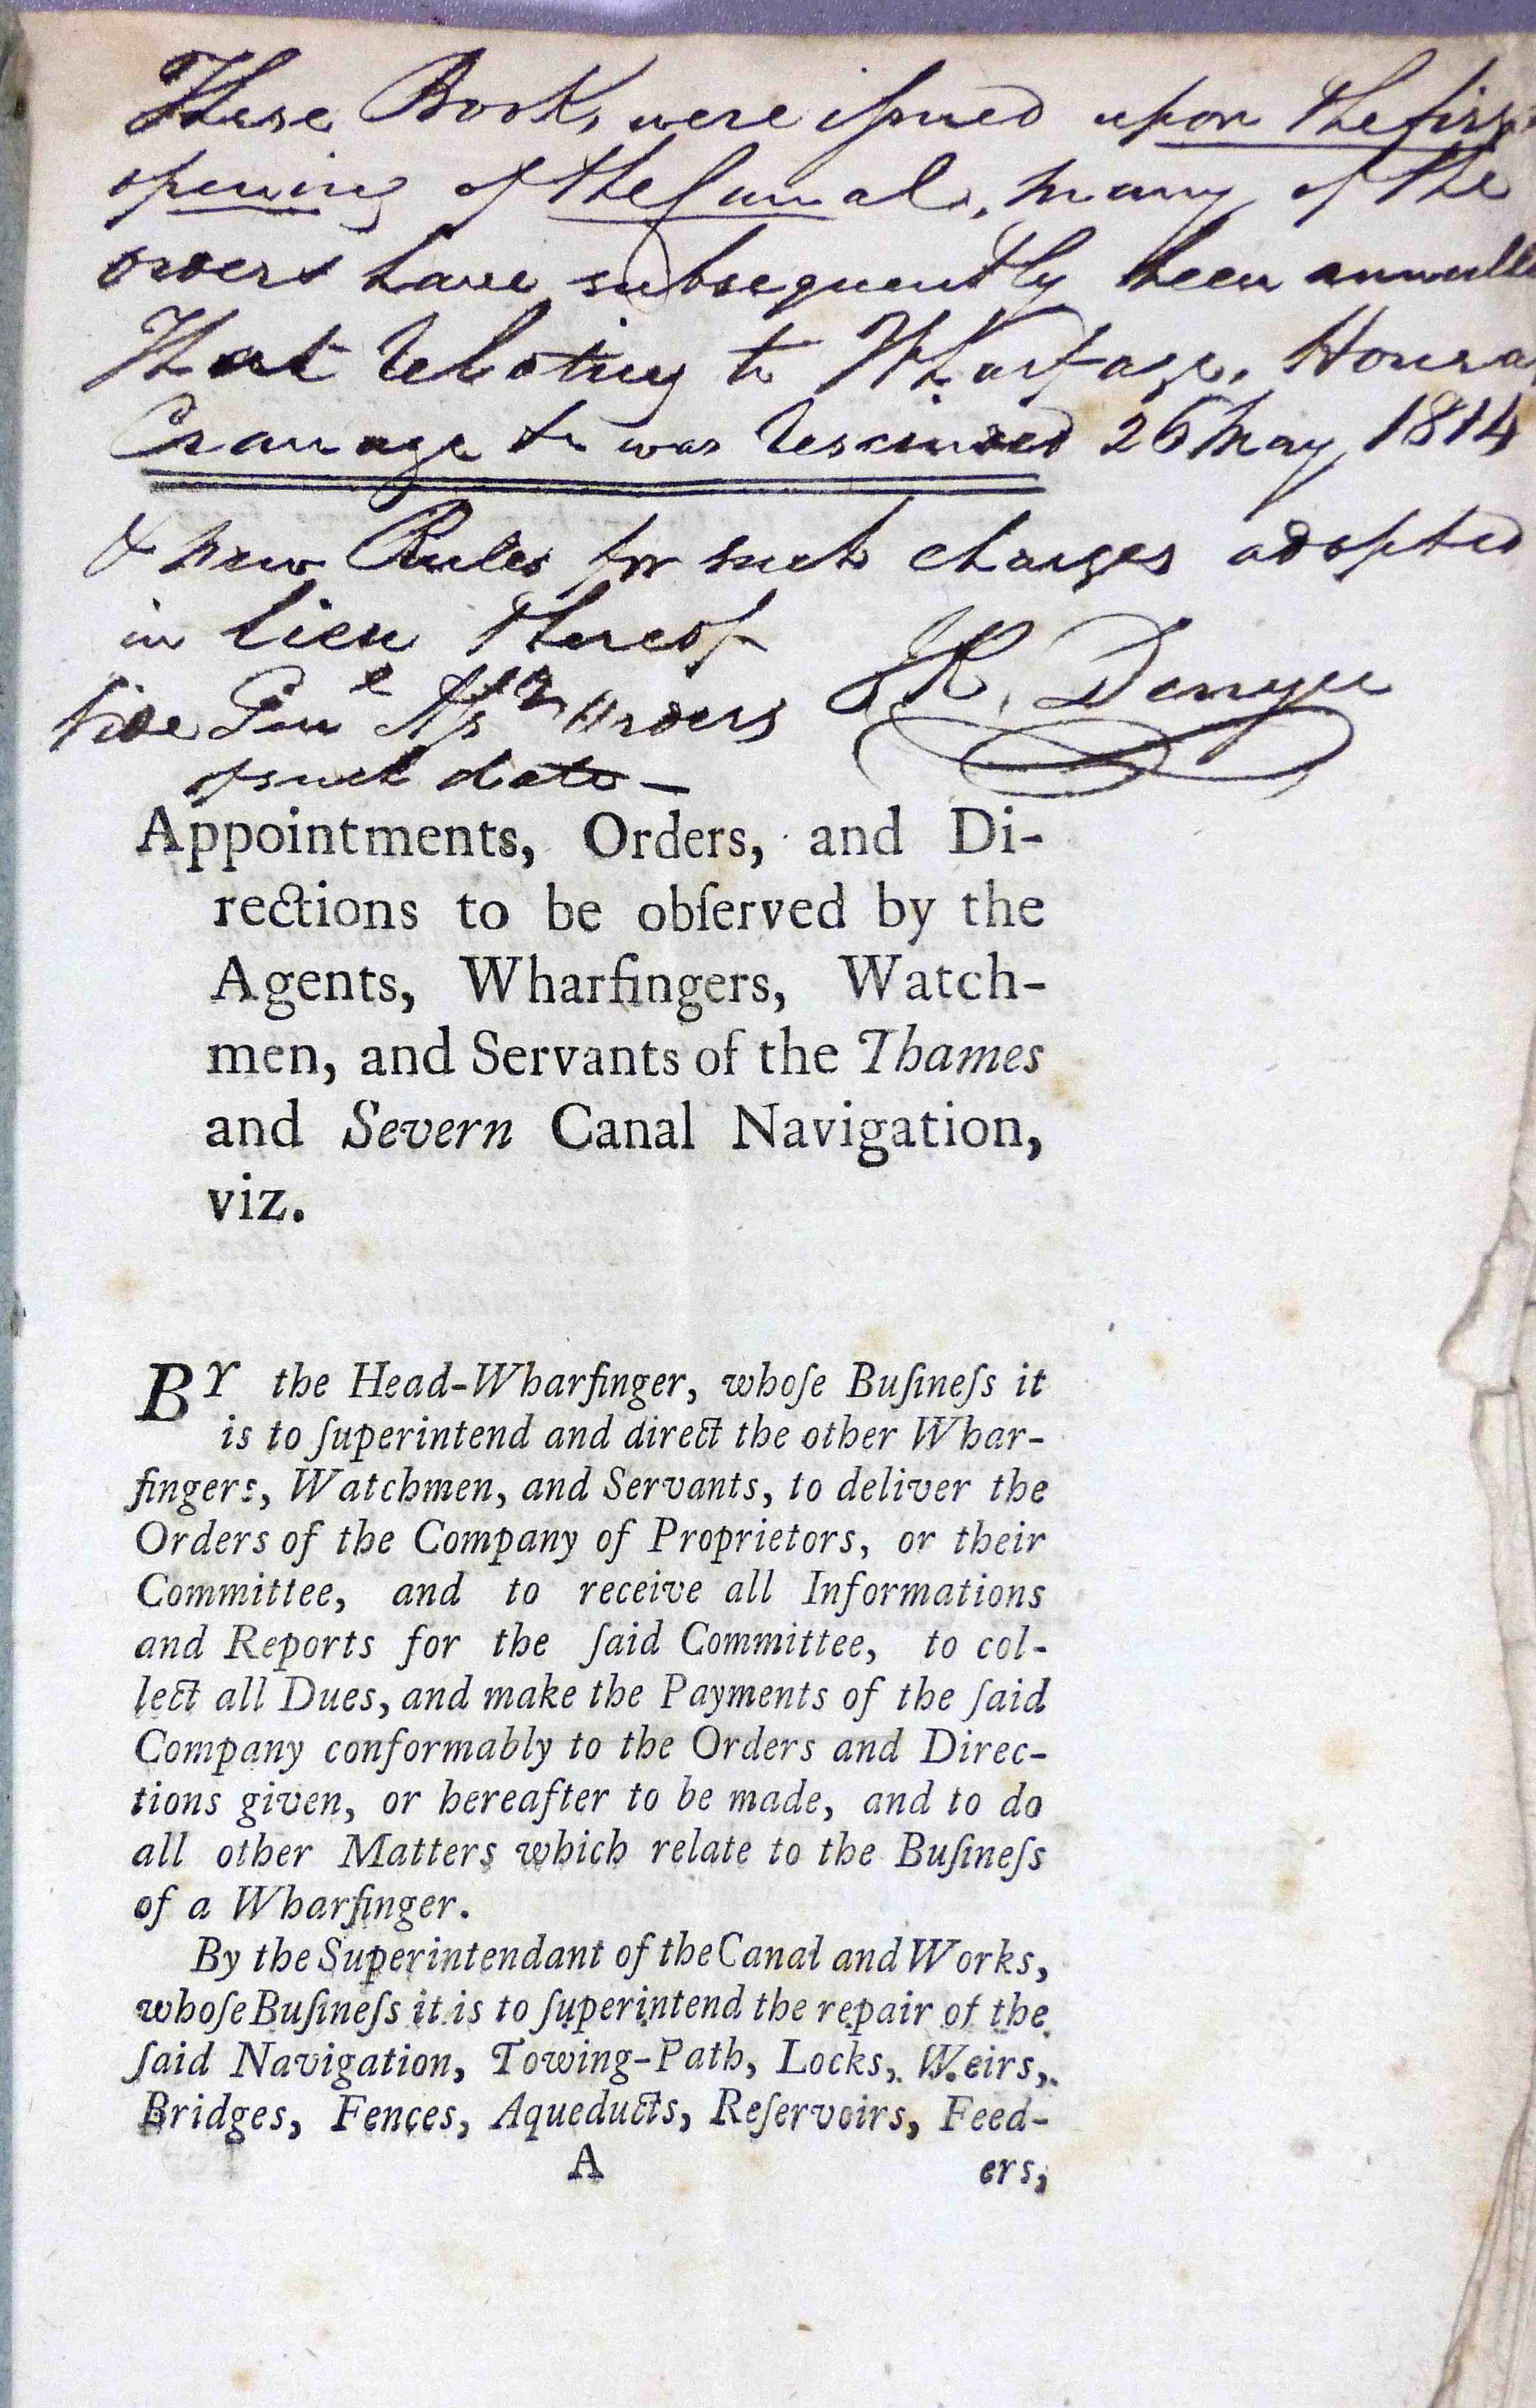 These Books were issued upon the first
opening of the Canal, many of the
orders have subsequently been annulle
That relating to Wharfage, Housa
Cranage &c was rescinded 26 May 1814
& new Rules for such charges adopted
in lieu thereof
vide Gen^l Ass^y Orders J K. Denyer
of such date —
Appointments, Orders, and Di-
rections to be obſerved by the
Agents, Wharfingers, Watch-
men, and Servants of the Thames
and Severn Canal Navigation,
viz.
BY the Head-Wharfinger, whoſe Buſineſs it
is to ſuperintend and direct the other Whar-
fingers, Watchmen, and Servants, to deliver the
Orders of the Company of Proprietors, or their
Committee, and to receive all Informations
and Reports for the ſaid Committee, to col-
lect all Dues, and make the Payments of the ſaid
Company conformably to the Orders and Direc-
tions given, or hereafter to be made, and to do
all other Matters which relate to the Buſineſs
of a Wharfinger.
By the Superintendant of the Canal and Works,
whoſe Buſineſs it is to ſuperintend the repair of the
ſaid Navigation, Towing-Path, Locks, Weirs,
Bridges, Fences, Aqueducts, Reſervoirs, Feed-
A ers,